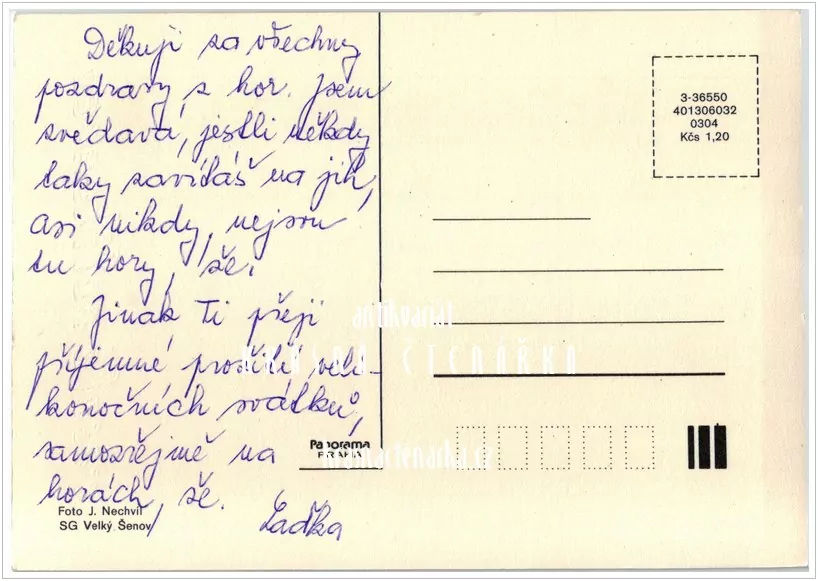 Děkuji za všechny
pozdravy z hor. Jsem
zvědavá, jestli někdy
taky zavítáš na jih,
asi nikdy, nejsou
tu hory, že.
Jinak Ti přeji
příjemné prožití veli-
konočních svátků,
samozřejmě na
horách, že.
Laďka
3-36550
401306032
0304
Kčs 1,20
artikvariat
KRÁSNÁ ČTENÁŘKA
krasnactenarka.cz
Panorama
PRAHA
Foto J. Nechvíl
SG Velký Šenov